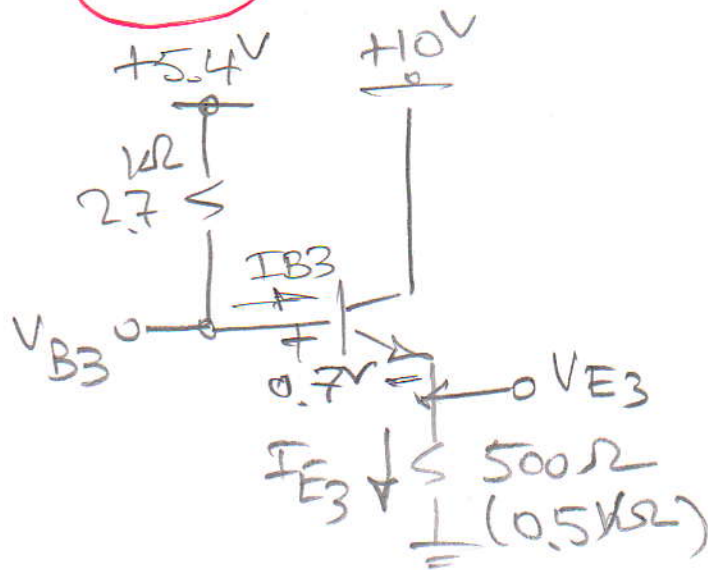 +5.4V
+10V
kΩ
2.7
IB3
VB3
+
0.7V -
VE3
IE3
500Ω
(0.5kΩ)